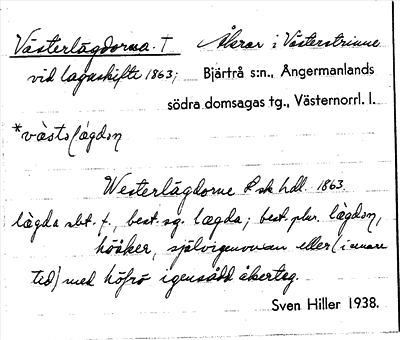 Västerlägdorna. † Åkrar i Västerstrinne
vid lagaskifte 1863; Bjärtrå s:n., Ångermanlands
södra domsagas tg., Västernorrl. l.
*västɘlǻgdɘn
Westerlägdorne Lsk hdl. 1863
lägda sbt. f., best. sg. lægda; best. plur. lägdɘn,
höåker, självigenvuxen eller (i senare
tid) med höfrö igensådd åkerteg.
Sven Hiller 1938.